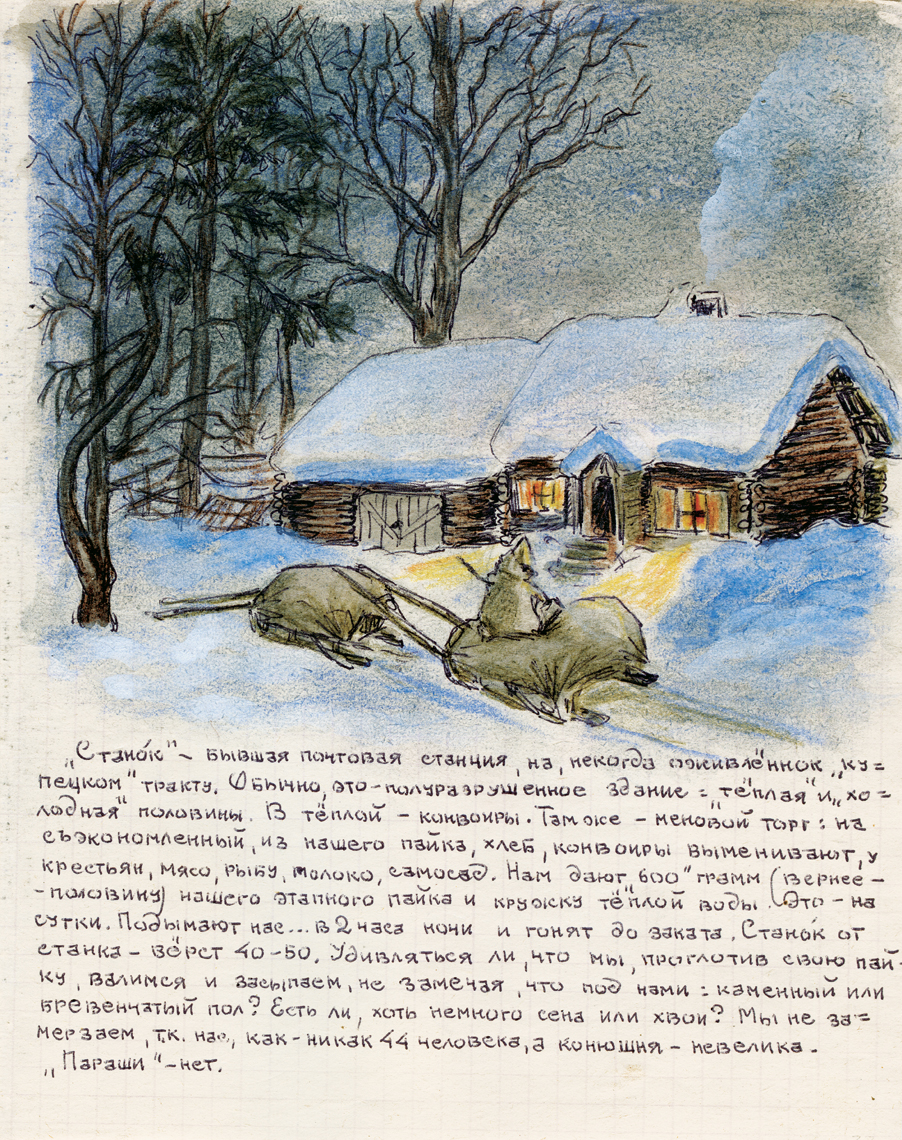 „Стано́к" – бывшая почтовая станция, на, некогда оживлённом „ку=
пецком" тракту. Обычно, это – полуразрушенное здание = „тёплая" и „хо=
лодная" половины. В тёплой – конвоиры. Там же – меновой торг: на
съэкономленный, из нашего пайка, хлеб, конвоиры выменивают, у
крестьян, мясо, рыбу, молоко, самосад. Нам дают 600 грамм (вернее –
– половину) нашего этапного пайка и кружку тёплой воды. Это – на
сутки. Подымают нас... в 2 часа ночи и гонят до заката. Стано́к от
станка – вёрст 40–50. Удивляться ли, что мы, проглотив свою пай-
ку, валимся и засыпаем, не замечая, что под нами: каменный или
бревенчатый пол? Есть ли, хоть немного сена или хвои? Мы не за=
мерзаем, т.к. нас, как-никак 44 человека, а конюшня – невелика.
„Параши" – нет.